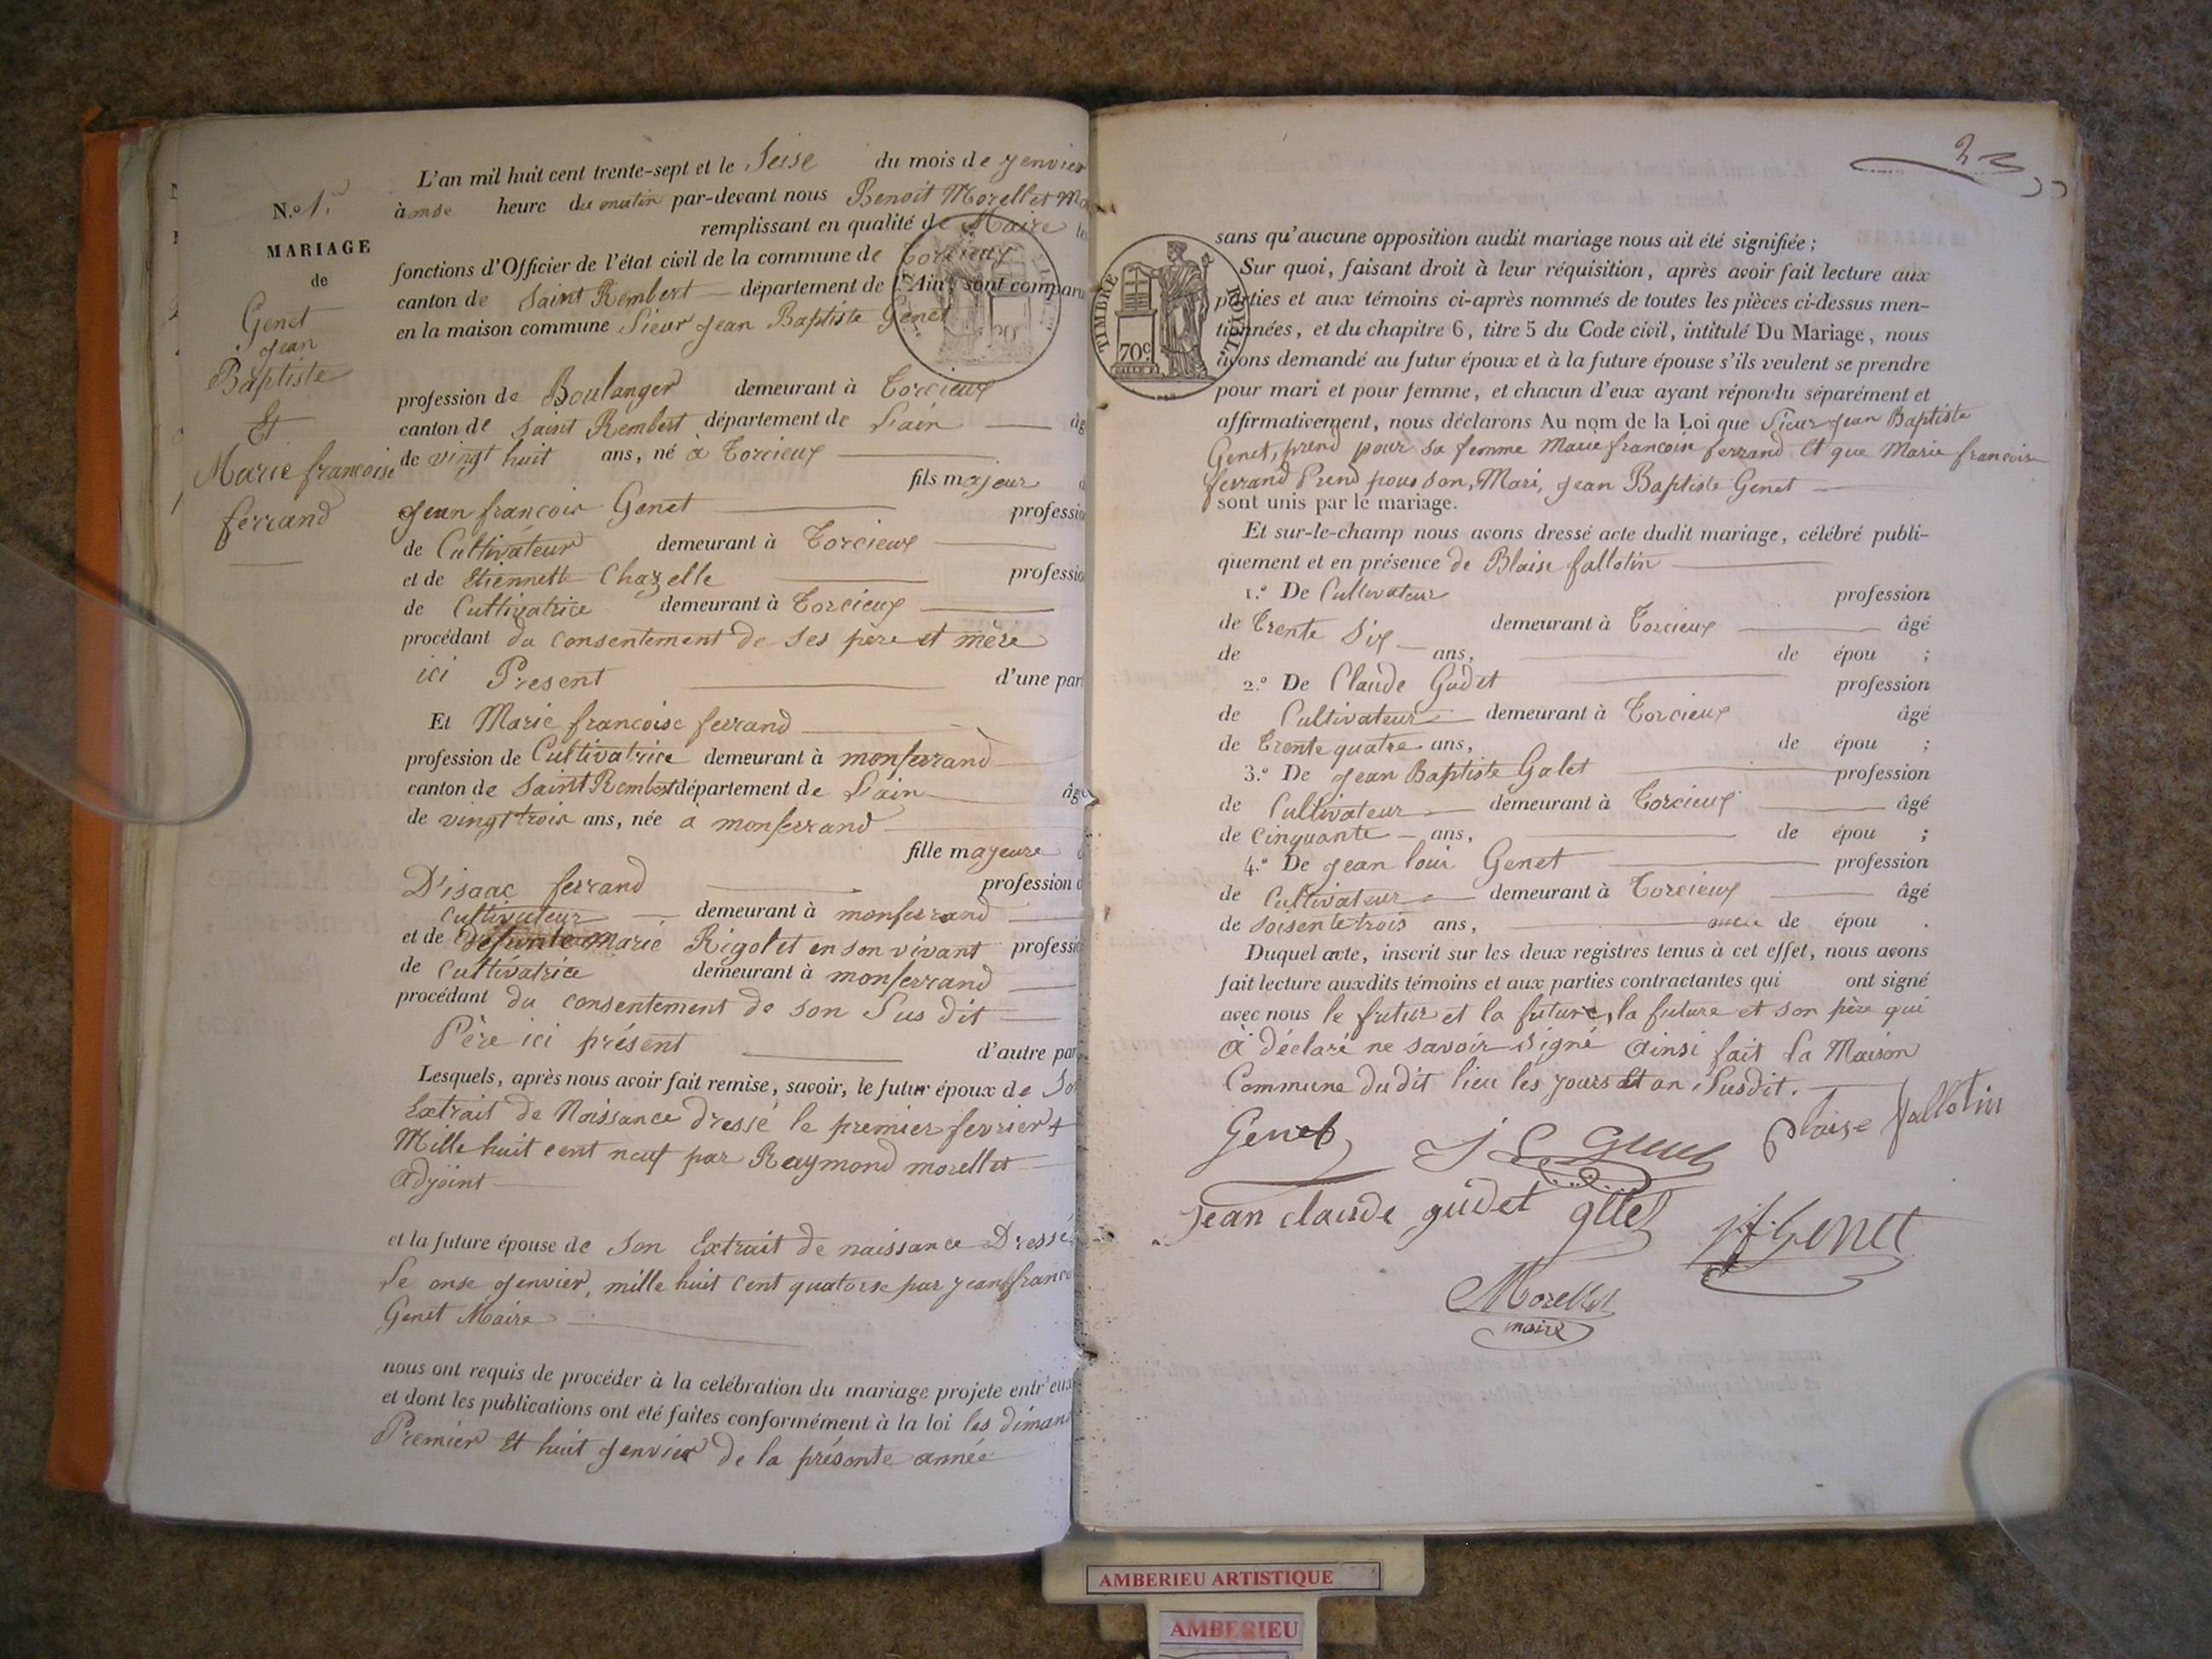 N.o 1.
MARIAGE
de
Genet
Jean
Baptiste
Et
Marie francoise
ferrand
L'an mil huit cent trente-sept et le Seise du mois de Jenvier
à onse heure du matin par-devant nous Benoit Morellet
remplissant en qualité de Maire
fonctions d'Officier de l'état civil de la commune de Torcieux
canton de Saint Rembert département de l'Ain sont compar
en la maison commune Sieur Jean Baptiste Genet
profession de Boulanger demeurant à Torcieux
canton de Saint Rembert département de Lain âg
de vingt huit ans, né à Torcieux
fils majeur
Jean francois Genet professio
de Cultivateur demeurant à Torcieux
et de Etiennette Chazelle professio
de Cultivatrice demeurant à Torcieux
procédant du consentement de ses père et mère
ici Present d'une part
Et Marie francoise ferrand
profession de Cultivatrice demeurant à monferrand
canton de Saint Rembert département de Lain âge
de vingt trois ans, née à monferrand
fille majeure
D'isaac ferrand profession d
cultivateur demeurant à monferrand
et de défunte Marie Rigolet en son vivant professio
de Cultivatrice demeurant à monferrand
procédant du consentement de son Sus dit
Père ici présent d'autre par
Lesquels, après nous avoir fait remise, savoir, le futur époux de So
Extrait de Naissance dressé le premier fevrier
Mille huit cent neuf par Raymond morellet
adjoint
et la future épouse de Son Extrait de naissance Dressé
Le onse Jenvier, mille huit Cent quatorse par Jean franco
Genet Maire
nous ont requis de procéder à la celébration du mariage projete entr'eux
et dont les publications ont été faites conformément à la loi les diman
Premier Et huit Jenvier de la présente année
23
TIMBRE ROYAL
70c.
sans qu'aucune opposition audit mariage nous ait été signifiée ;
Sur quoi, faisant droit à leur réquisition, après avoir fait lecture aux
parties et aux témoins ci-après nommés de toutes les pièces ci-dessus men-
tionnées, et du chapitre 6, titre 5 du Code civil, intitulé Du Mariage, nous
avons demandé au futur époux et à la future épouse s'ils veulent se prendre
pour mari et pour femme, et chacun d'eux ayant répondu séparément et
affirmativement, nous déclarons Au nom de la Loi que Sieur Jean Baptiste
Genet, prend pour sa femme Marie francoise ferrand Et que Marie francoise
ferrand Prend pour son, Mari, Jean Baptiste Genet
sont unis par le mariage.
Et sur-le-champ nous avons dressé acte dudit mariage, célébré publi-
quement et en présence de Blaise fallotin
1.o De Cultivateur profession
de Trente Six demeurant à Torcieux âgé
de ans, de épou ;
2.o De Claude Gudet profession
de Cultivateur demeurant à Torcieux âgé
de Trente quatre ans, de épou ;
3.o De Jean Baptiste Galet profession
de Cultivateur demeurant à Torcieux âgé
de Cinquante ans, de épou ;
4.o De Jean loui Genet profession
de Cultivateur demeurant à Torcieux âgé
de soisente trois ans, de épou .
Duquel acte, inscrit sur les deux registres tenus à cet effet, nous avons
fait lecture auxdits témoins et aux parties contractantes qui ont signé
avec nous le futur et la future, la future et son père qui
à déclaré ne savoir signé ainsi fait La Maison
Commune dudit lieu les jours Et an Susdit.
Genet J L Genet Blaise fallotin
Jean claude gudet J f Genet
Morellet
maire
AMBERIEU ARTISTIQUE
AMBERIEU